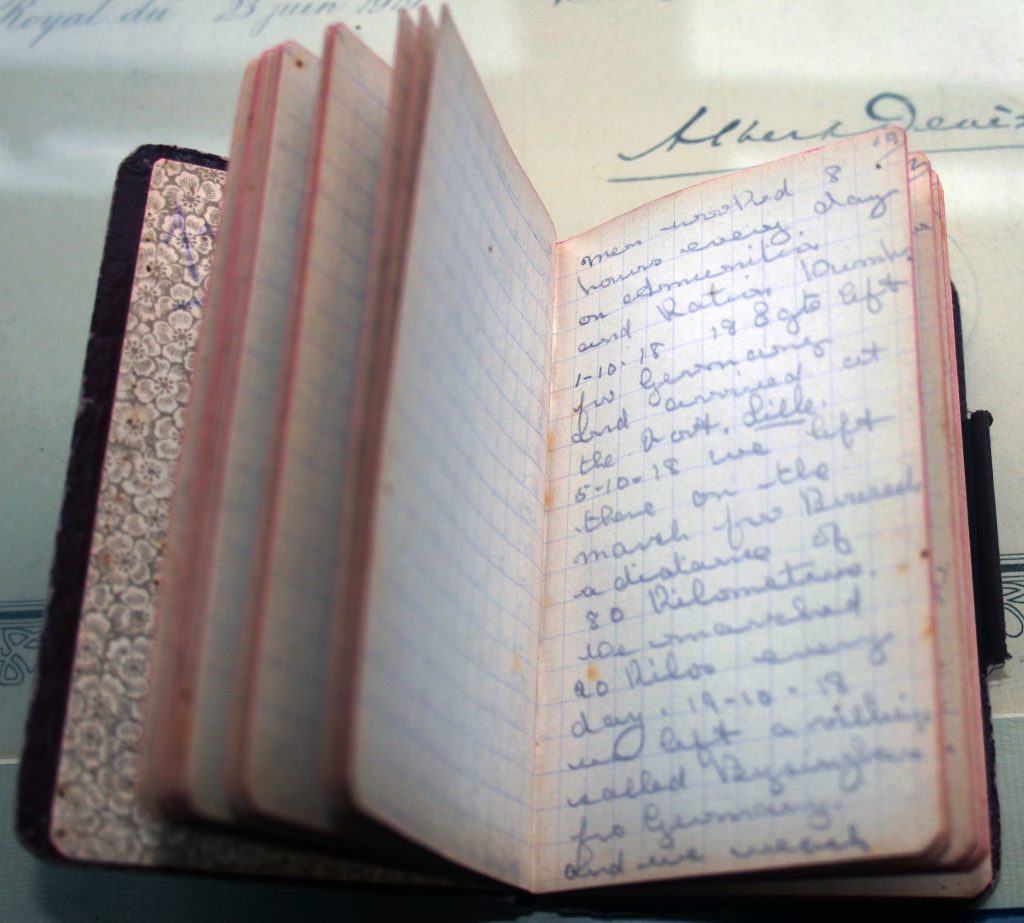 Royal du 23 juin 1919
Albert Deviz
men worked 8
hours every day
on admunition
and Ration Dumps.
1-10-18 188 gto left
for Germany
and arrived at
the Fort. Lille.
5-10-18 we left
there on the
march for Brussels
a distance of
80 Kilometers.
We marched
20 Kilos every
day. 19-10-18
we left a villige
called
for Germany.
and we